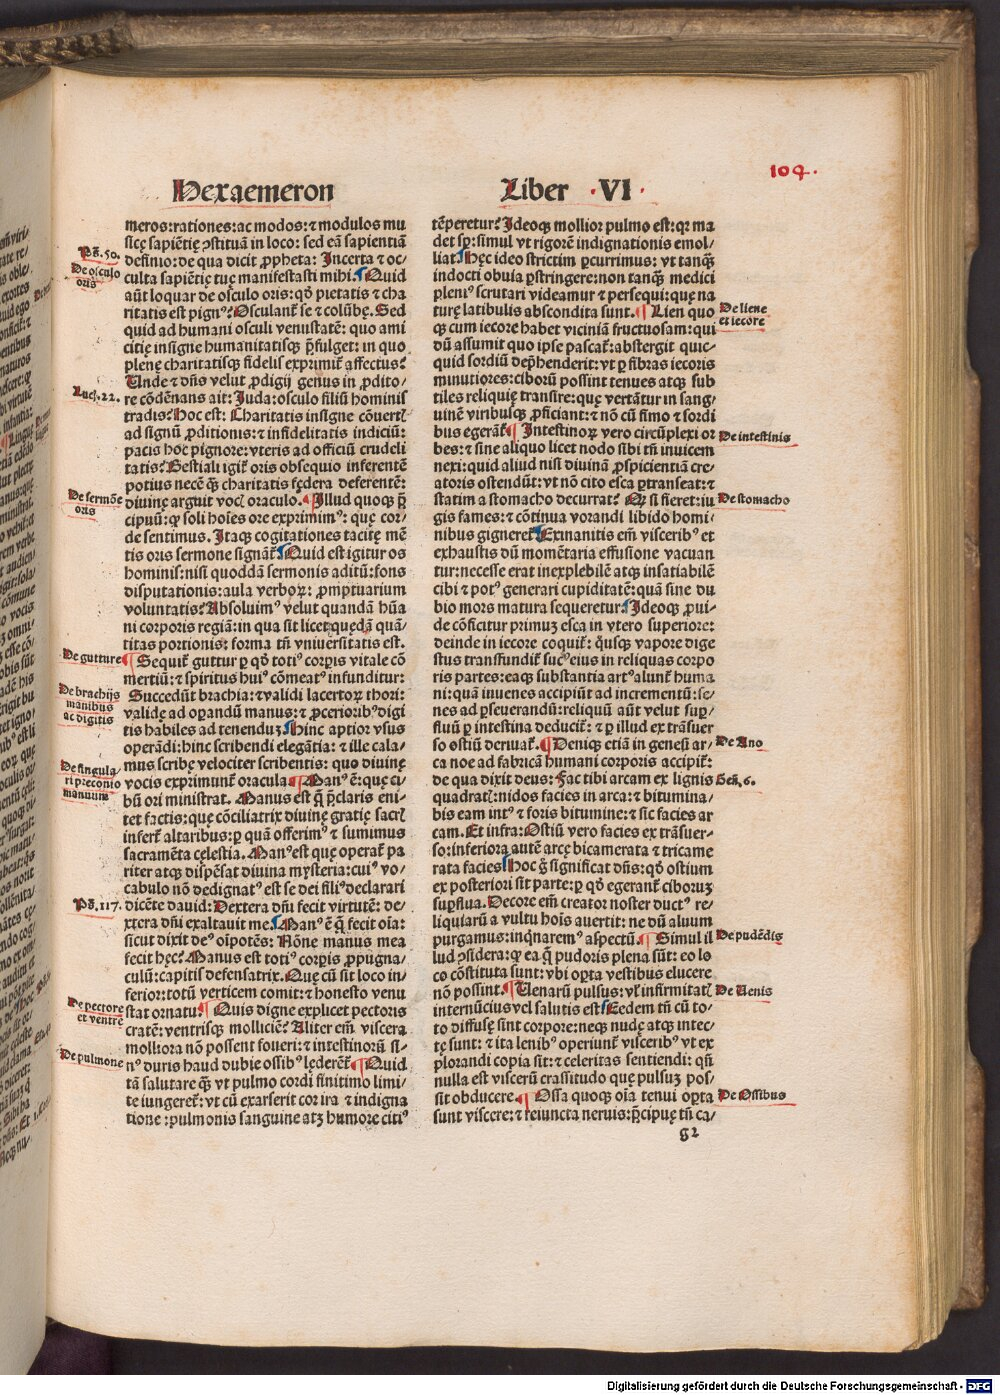 104.
Hexaemeron
Liber .VI.
meros:rationes:ac modos:⁊ modulos mu
sicę sapiẽtię ↄstituã in loco: sed eã sapientiã
definio: de qua dicit ꝓpheta: Incerta ⁊ oc⸗
culta sapiẽtię tuę manifestasti mihi. Quid
aũt loquar de osculo oris: qď pietatis ⁊ cha
ritatis est pignꝰ? Osculant᷑ se ⁊ colũbę. Sed
quid ad humani osculi venustatẽ: quo ami
citię insigne humanitatisqꝫ p̃fulget: in quo
plenę charitatisqꝫ fidelis exprimit᷑ affectus?
Unde ⁊ dñs velut ꝓdigij genus in ꝓdito⸗
re cõdẽnans ait: Juda: osculo filiũ hominis
tradis? Hoc est: Charitatis insigne cõuert᷑
ad signũ ꝓditionis: ⁊ infidelitatis indiciũ:
pacis hoc pignore: vteris ad officiũ crudeli
tatis? Bestiali igit᷑ oris obsequio inferentẽ
potius necẽ q̃ꝫ charitatis fędera deferentẽ:
diuinę arguit vocꝭ oraculo. Illud quoqꝫ p̃
cipuũ: qꝙ soli hoĩes ore exprimimꝰ: quę cor⸗
de sentimus. Itaqꝫ cogitationes tacitę mẽ
tis oris sermone signant᷑. Quid est igitur os
hominis: nisi quoddã sermonis aditũ: fons
disputationis: aula verboꝝ: ꝓmptuarium
voluntatis? Absoluimꝰ velut quandã hũa
ni corporis regiã: in qua sit licet quędã quã⸗
titas portionis: forma tñ vniuersitatis est.
Sequit᷑ guttur ꝑ qď totiꝰ corꝑis vitale cõ
mertiũ: ⁊ spiritus huiꝰ cõmeatꝰ infunditur:
Succedũt brachia: ⁊ validi lacertoꝝ thori:
validę ad oꝑandũ manus: ⁊ ꝓcerioribꝰ digi
tis habiles ad tenenduꝫ. Hinc aptior vsus
operãdi: hinc scribendi elegãtia: ⁊ ille cala⸗
mus scribę velociter scribentis: quo diuinę
vocis exprimunt᷑ oracula. Manꝰ ẽ: quę ci⸗
bũ ori ministrat. Manus est q̃ p̃claris eni⸗
tet factis: quę cõciliatrix diuinę gratię sacrꝭ
infert᷑ altaribus: ꝑ quã offerimꝰ ⁊ sumimus
sacramẽta cęlestia. Manꝰ est quę operat᷑ pa
riter atqꝫ dispẽsat diuina mysteria: cuiꝰ vo⸗
cabulo nõ dedignatꝰ est se dei filiꝰ declarari
dicẽte dauid: Dextera dñi fecit virtutẽ: de⸗
xtera dñi exaltauit me. Manꝰ ẽ q̃ fecit oĩa:
sicut dixit deꝰ oĩpotẽs: Nõne manus mea
fecit hęc? Manus est totiꝰ corꝑis ꝓpugna⸗
culũ: capitis defensatrix. Quę cũ sit loco in⸗
feriori: totũ verticem comit: ⁊ honesto venu
stat ornatu. Quis digne explicet pectoris
cratẽ: ventrisqꝫ molliciẽ? Aliter em̃ viscera
molliora nõ possent foueri: ⁊ intestinorũ si⸗
nꝰ duris haud dubie ossibꝰ lęderẽt᷑. Quid
tã salutare q̃ꝫ vt pulmo cordi finitimo limi⸗
te iungeret᷑: vt cũ exarserit cor ira ⁊ indigna
tione: pulmonis sanguine atqꝫ humore citiꝰ
Pš. 50.
De osculo
oris
Luc. 22.
De sermõe
oris
De gutture
De brachijs
manibus
ac digitis
De singula⸗
ri preconio
manuum
Pš. 117.
De pectore
et ventre
De pulmone
tẽperetur? Ideoqꝫ mollior pulmo est: qꝛ ma
det sꝑ: simul vt rigorẽ indignationis emol⸗
liat. Hęc ideo strictim ꝑcurrimus: vt tanqꝫ̃
indocti obuia ꝑstringere: non tanqꝫ̃ medici
pleniꝰ scrutari videamur ⁊ persequi: quę na
turę latibulis abscondita sunt. Lien quo
qꝫ cum iecore habet viciniã fructuosam: qui
dũ assumit quo ipse pascat᷑: abstergit quic⸗
quid sordiũ dep̃henderit: vt ꝑ fibras iecoris
minutiores: ciborũ possint tenues atqꝫ sub
tiles reliquię transire: quę vertãtur in sang⸗
uinẽ viribusqꝫ ꝓficiant: ⁊ nõ cũ fimo ⁊ sordi
bus egerãt᷑. Intestinoꝝ vero circũplexi or
bes: ⁊ sine aliquo licet nodo sibi tñ inuicem
nexi: quid aliud nisi diuinã ꝓspicientiã cre⸗
atoris ostendũt: vt nõ cito esca ꝑtranseat: ⁊
statim a stomacho decurrat? Qꝙ si fieret: iu
gis fames: ⁊ cõtinua vorandi libido homi⸗
nibus gigneret᷑. Exinanitis em̃ visceribꝰ et
exhaustis dũ momẽtaria effusione vacuan
tur: necesse erat inexplebilẽ atqꝫ insatiabilẽ
cibi ⁊ potꝰ generari cupiditatẽ: quã sine du
bio mors matura sequeretur. Ideoqꝫ ꝓui⸗
de cõficitur primuꝫ esca in vtero superiore:
deinde in iecore coquit᷑: q̃isqꝫ vapore dige
stus transfundit᷑ succꝰ eius in reliquas corpo
ris partes: eaqꝫ substantia artꝰ alunt᷑ huma
ni: quã iuuenes accipiũt ad incrementũ: se⸗
nes ad ꝑseuerandũ: reliquũ aũt velut suꝑ⸗
fluũ ꝑ intestina deducit᷑: ⁊ ꝑ illud ex trãsuer
so ostiũ deriuat᷑. Deniqꝫ etiã in genesi ar⸗
ca noe ad fabricã humani corporis accipit᷑:
de qua dixit deus: Fac tibi arcam ex lignis
quadratꝭ: nidos facies in arca: ⁊ bitumina⸗
bis eam intꝰ ⁊ foris bitumine: ⁊ sic facies ar
cam. Et infra: Ostiũ vero facies ex trãsuer⸗
so: inferiora autẽ arcę bicamerata ⁊ tricame
rata facies. Hoc g̊ significat dñs: qď ostium
ex posteriori sit parte: ꝑ qď egerant᷑ ciboruꝫ
suꝑflua. Decore em̃ creator noster ductꝰ re⸗
liquiarũ a vultu hoĩs auertit: ne dũ aluum
purgamus: inq̃naremꝰ aspectũ. Simul il
lud ↄsidera: qꝙ ea q̃ pudoris plena sũt: eo lo
co cõstituta sunt: vbi oꝑta vestibus elucere
nõ possint. Venarũ pulsus: vꝉ infirmitatꝭ
internũcius vel salutis est. Eedem tñ cũ to⸗
to diffusę sint corpore: neqꝫ nudę atqꝫ intec⸗
tę sunt: ⁊ ita leuibꝰ operiunt᷑ visceribꝰ vt ex
plorandi copia sit: ⁊ celeritas sentiendi: qñ
nulla est viscerũ crassitudo quę pulsuꝫ pos⸗
sit obducere. Ossa quoqꝫ oĩa tenui oꝑta
sunt viscere: ⁊ reiuncta neruis: p̃cipuę tñ ca⸗
g2
De liene
et iecore
De intestinis
De stomacho
De Ano
Geñ. 6.
De pudẽdis
De Venis
De Ossibus
Digitalisierung gefördert durch die Deutsche Forschungsgemeinschaft - DFG